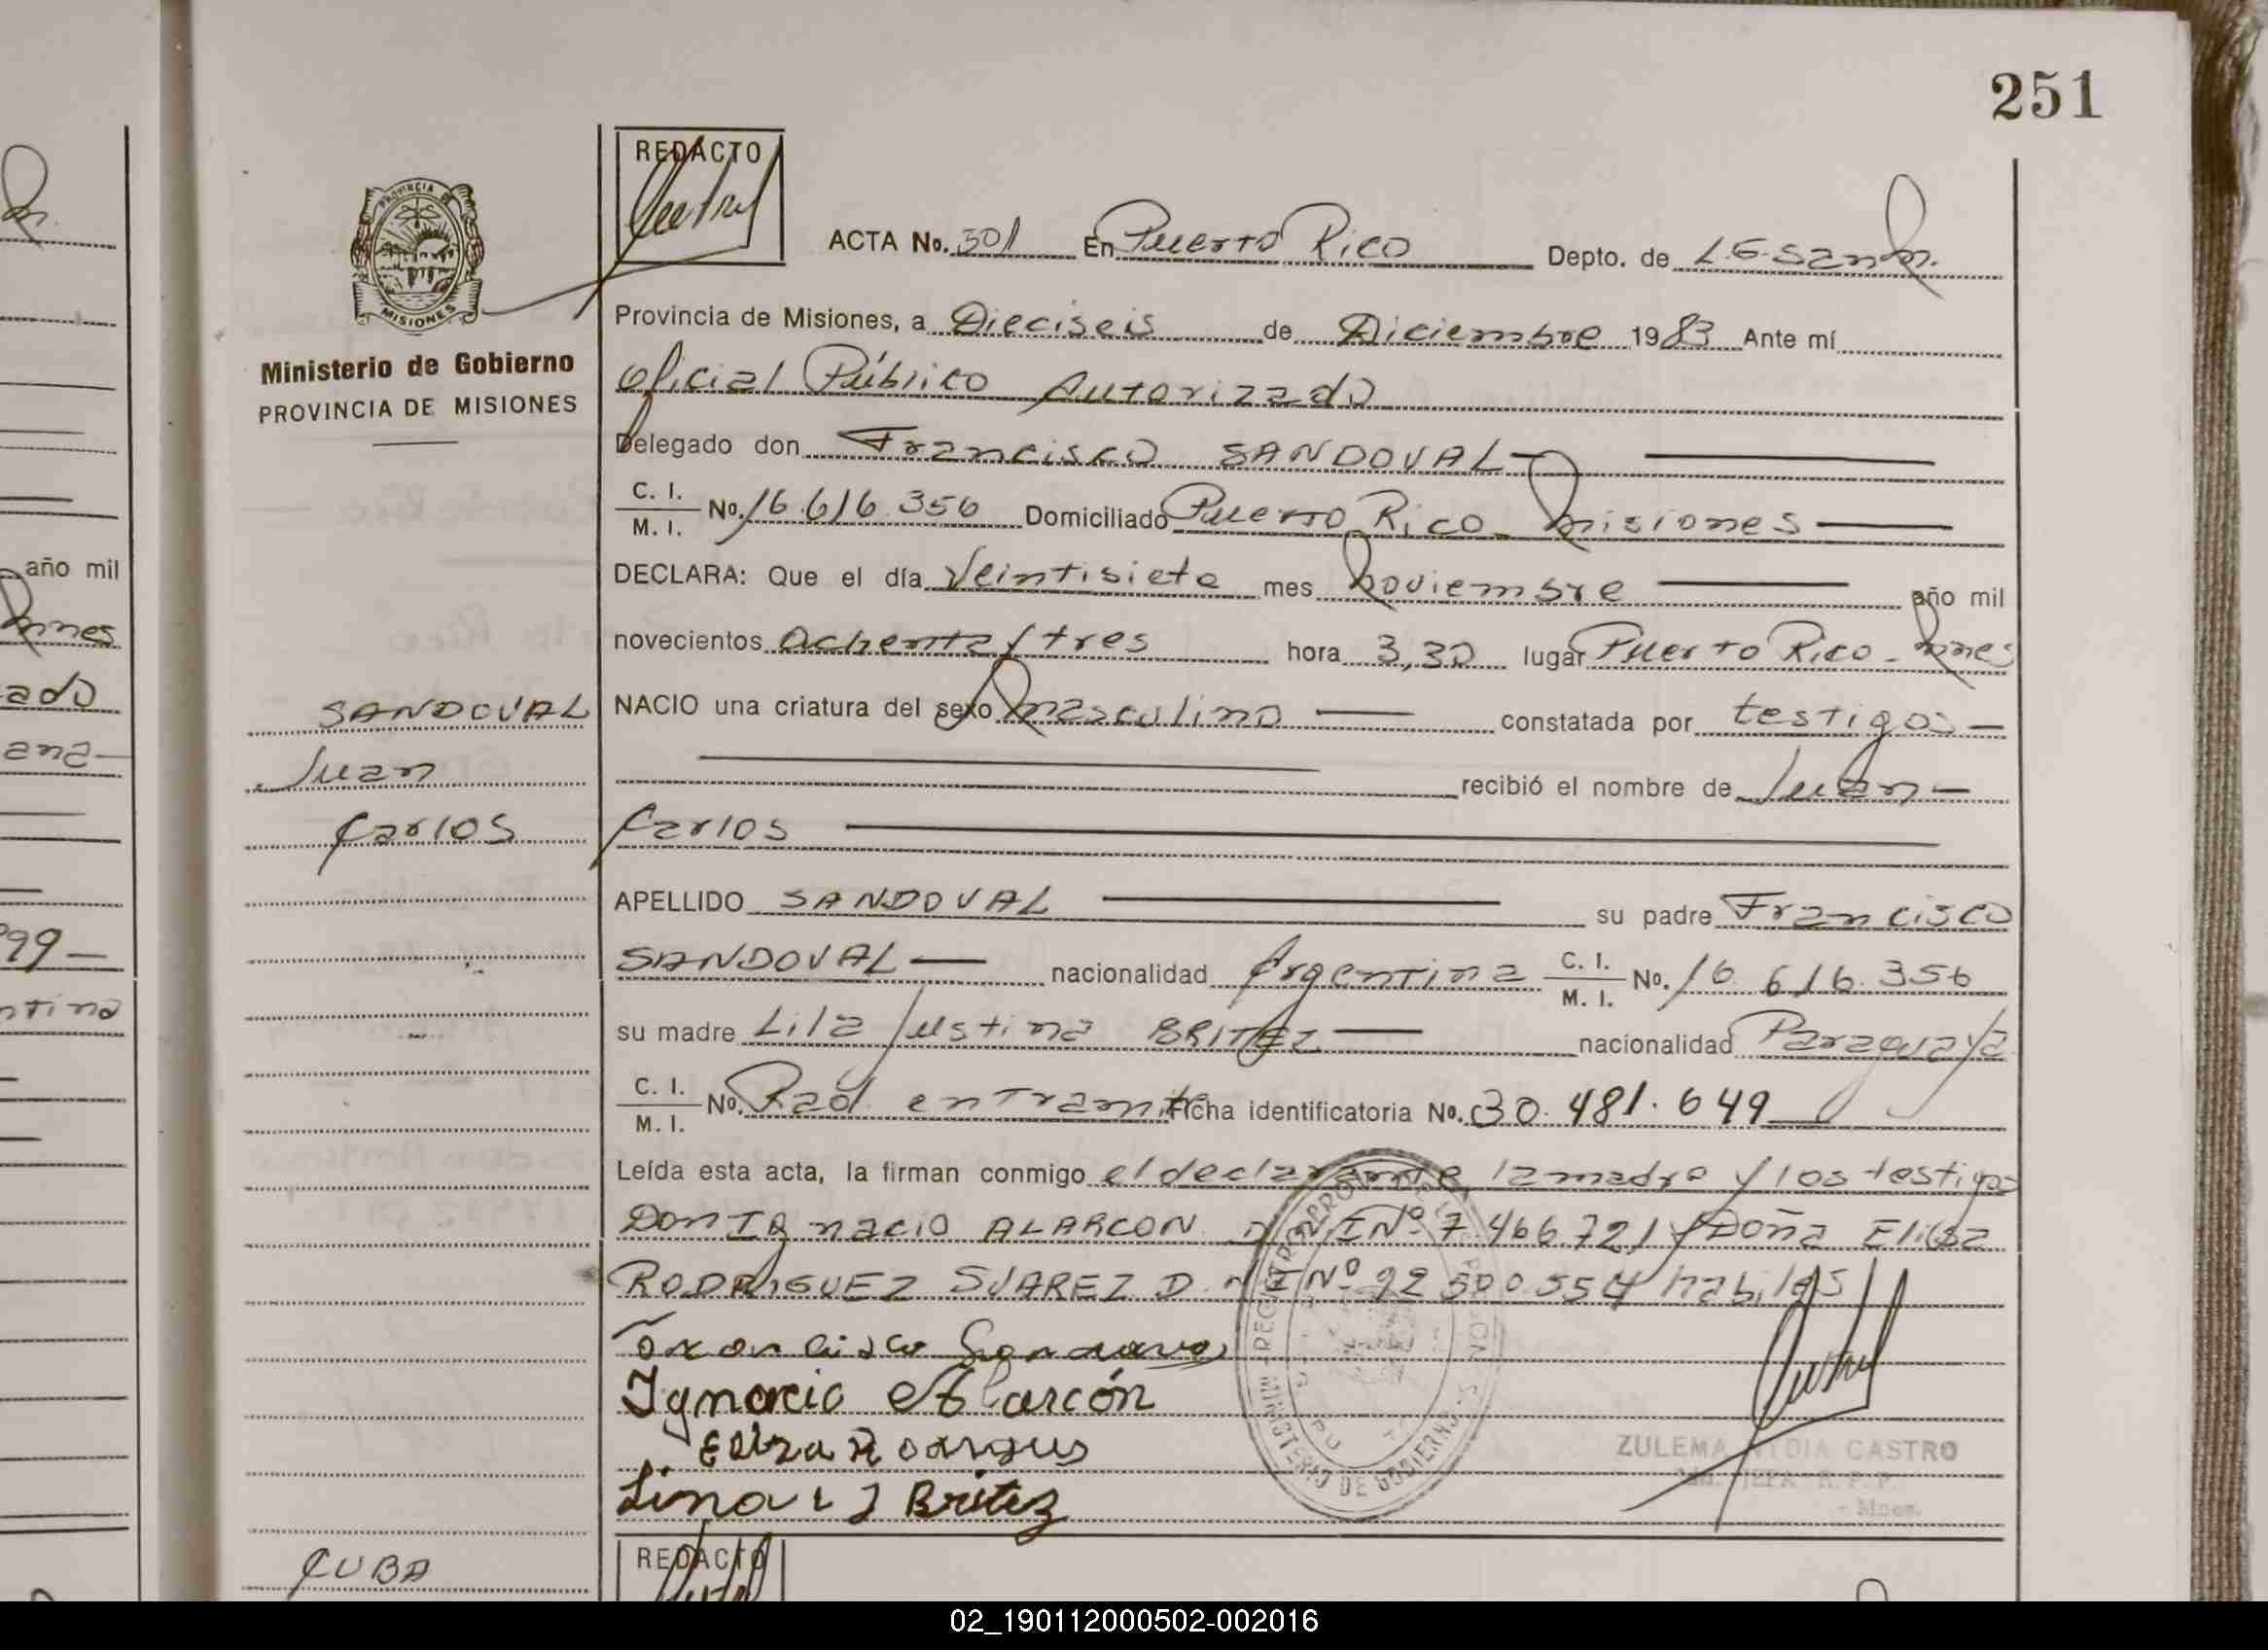 251
REDACTO
ACTA No. 501 En Puerto Rico Depto. de L.G. San M.
Provincia de Misiones, a Dieciseis de Diciembre 1983 Ante mí
Oficial Público Autorizado
Delegado don Francisco SANDOVAL
C. I. / M. I. No. 16.616.356 Domiciliado Puerto Rico - Misiones
DECLARA: Que el día Veintisiete mes Noviembre año mil
novecientos Ochenta y tres hora 3,30 lugar Puerto Rico - Mnes
NACIO una criatura del sexo Masculino constatada por testigos
recibió el nombre de Juan
Carlos
APELLIDO SANDOVAL su padre Francisco
SANDOVAL nacionalidad Argentina C. I. / M. I. No. 16.616.356
su madre Lila Justina BRITEZ nacionalidad Paraguaya
C. I. / M. I. No. Rad. en Tramite Ficha identificatoria No. 30.481.649
Leída esta acta, la firman conmigo el declarante, la madre y los testigos
Don Ignacio ALARCON D.N.I Nº 7.466.721 y Doña Elisa
RODRIGUEZ SUAREZ D.N.I Nº 92.500.554 habiles
Francisco Sandoval
Ignacio Alarcón
Britez
ZULEMA CASTRO
JEFA R. P. P.
Mnes.
MINISTERIO DE GOBIERNO
PROVINCIA DE MISIONES
Ministerio de Gobierno
PROVINCIA DE MISIONES
SANDOVAL
Juan
Carlos
CUBA
REDACTO
año mil
Mnes
ado
ana
99
ntina
02_190112000502-002016